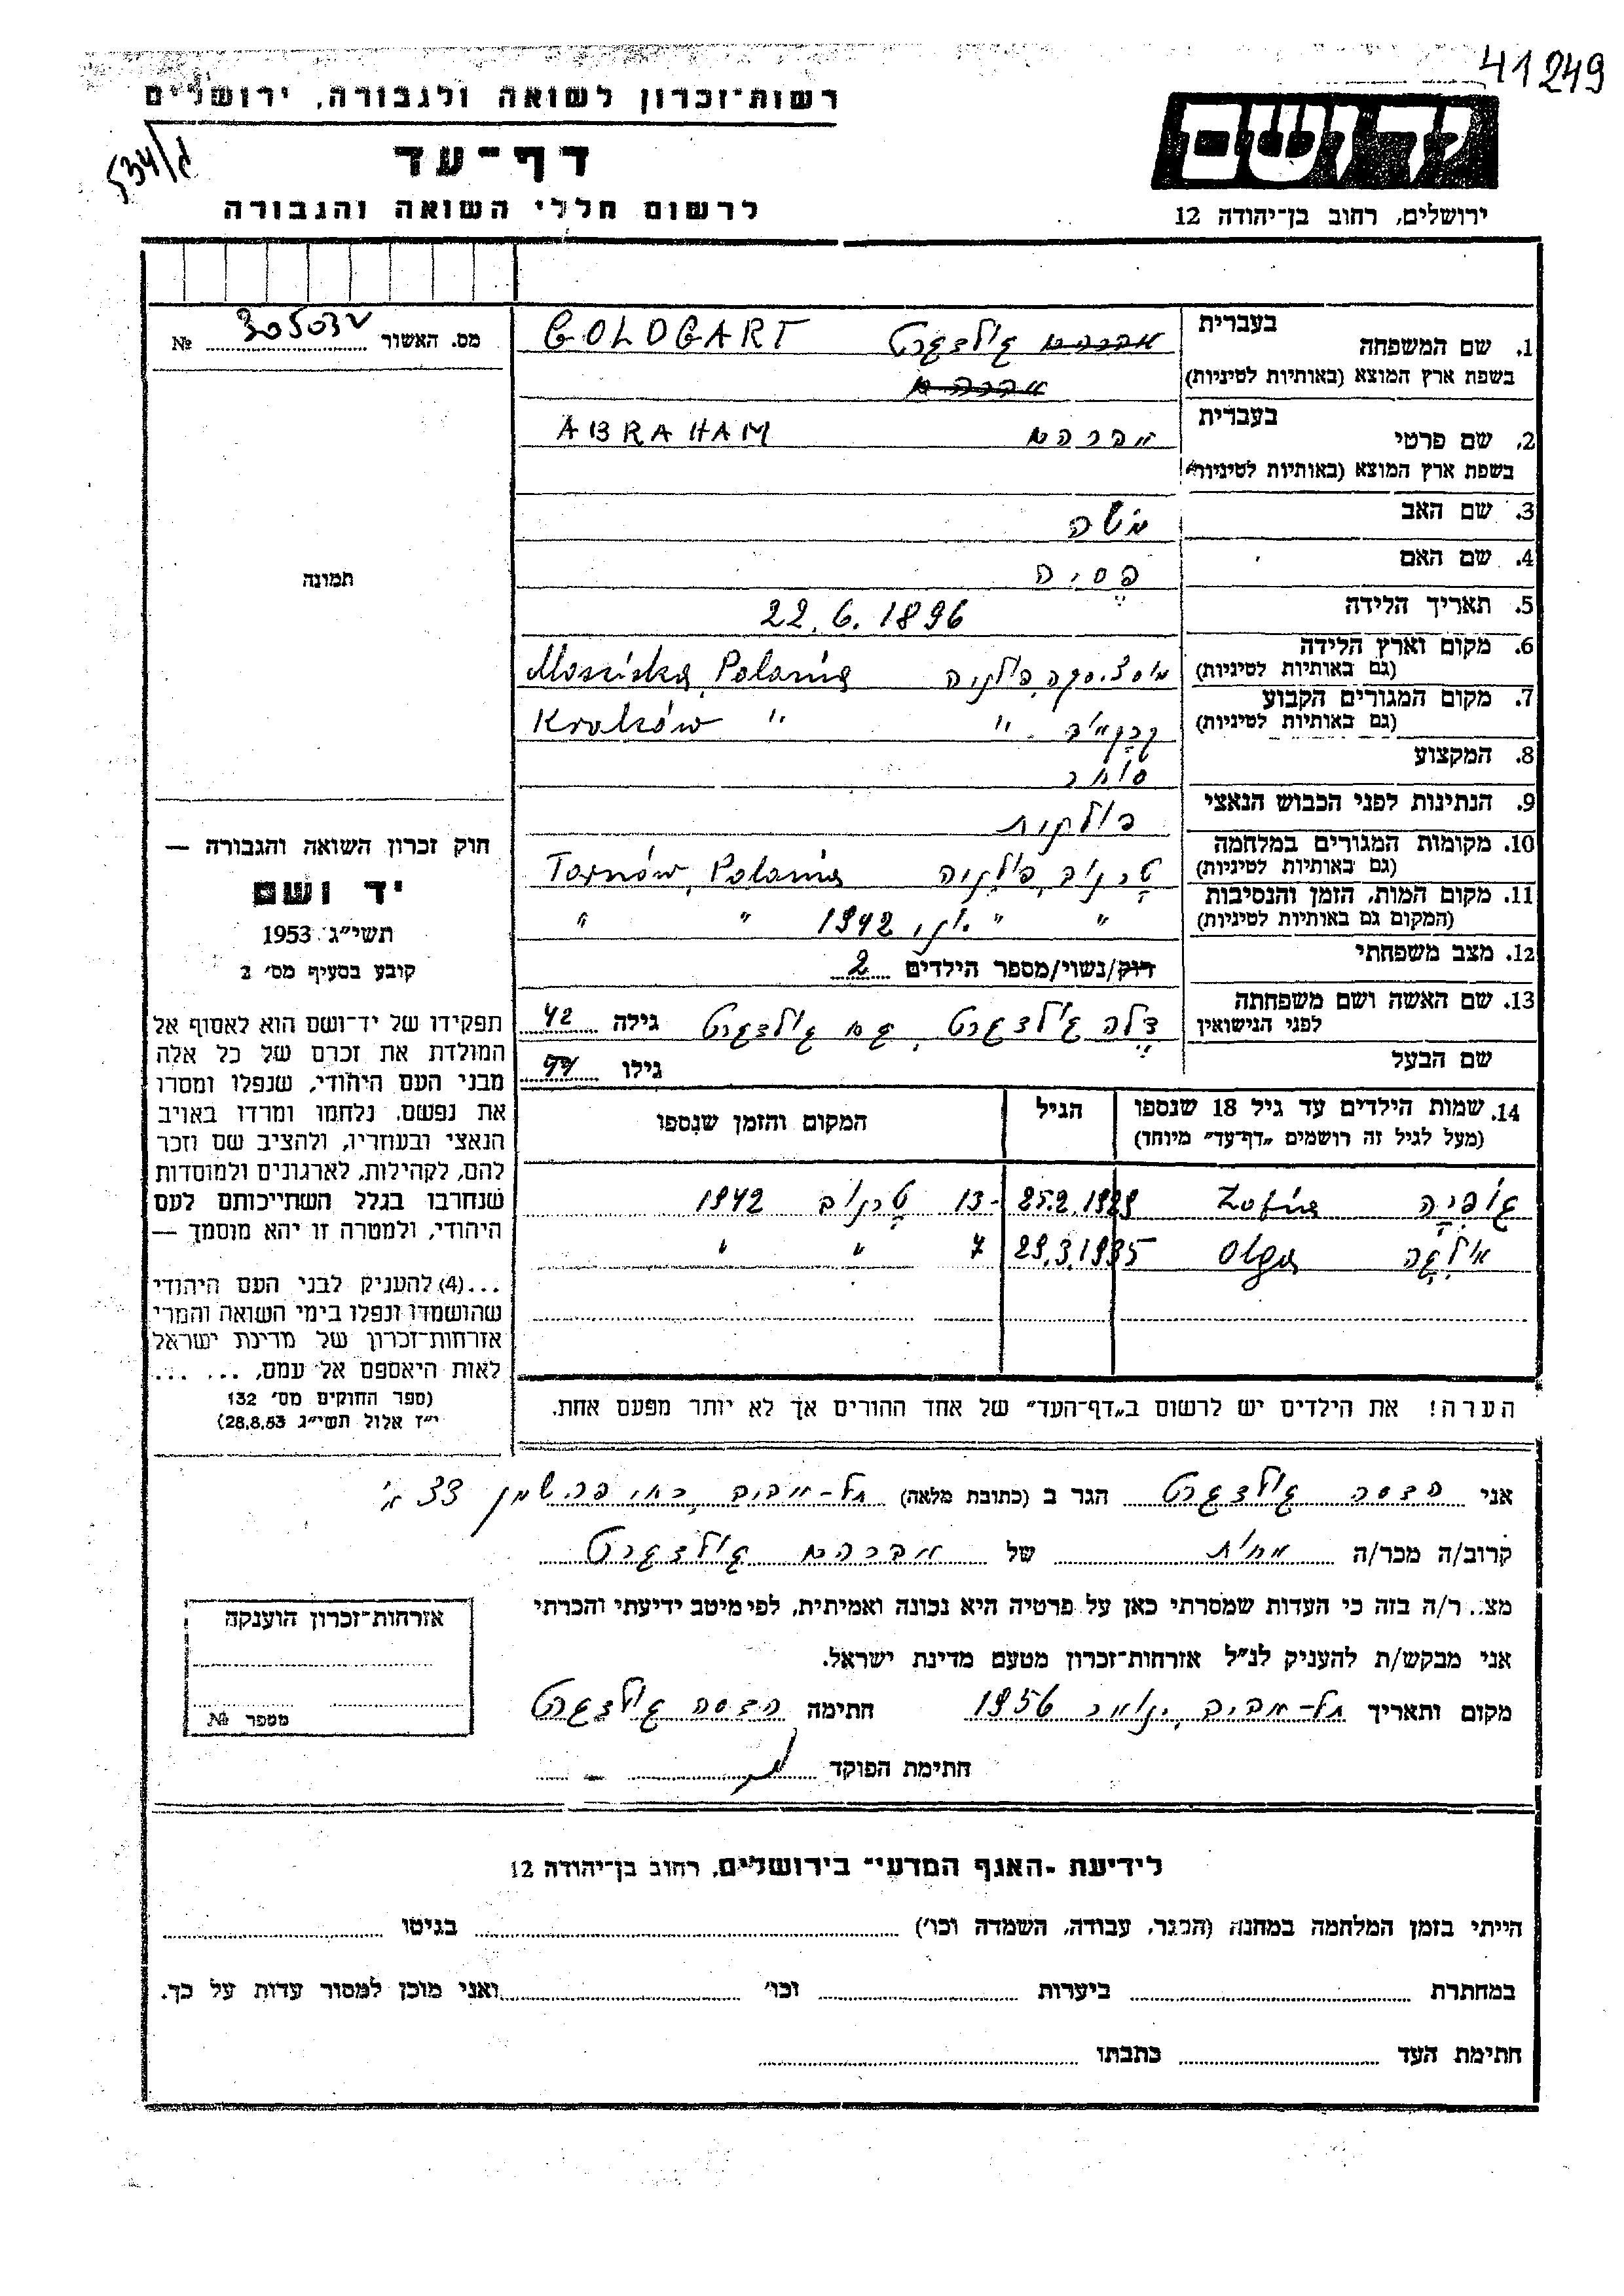 41249
רשות־זכרון לשואה ולגבורה, ירושלים
דף־עד
לרשום חללי השואה והגבורה
534/ג
יד ושם
ירושלים, רחוב בן־יהודה 12
מס. האשור 305032 №
תמונה
חוק זכרון השואה והגבורה —
יד ושם
תשי״ג 1953
קובע בסעיף מס׳ 2
תפקידו של יד־ושם הוא לאסוף אל
המולדת את זכרם של כל אלה
מבני העם היהודי, שנפלו ומסרו
את נפשם, נלחמו ומרדו באויב
הנאצי ובעוזריו, ולהציב שם וזכר
להם, לקהילות, לארגונים ולמוסדות
שנחרבו בגלל השתייכותם לעם
היהודי, ולמטרה זו יהא מוסמך —
...(4) להעניק לבני העם היהודי
שהושמדו ונפלו בימי השואה והמרי
אזרחות־זכרון של מדינת ישראל
לאות היאספם אל עמם, ... ...
(ספר החוקים מס׳ 132
י״ז אלול תשי״ג 28.8.53)
בעברית
1. שם המשפחה אברהם גולדגרט GOLDGART
בשפת ארץ המוצא (באותיות לטיניות) אברהם
בעברית
2. שם פרטי אברהם ABRAHAM
בשפת ארץ המוצא (באותיות לטיניות)
3. שם האב משה
4. שם האם פסיה
5. תאריך הלידה 22.6.1896
6. מקום וארץ הלידה
(גם באותיות לטיניות) מוסציסקה, פולניה Mosciska, Polania
7. מקום המגורים הקבוע
(גם באותיות לטיניות) קרקוב " Kraków "
8. המקצוע סוחר
9. הנתינות לפני הכבוש הנאצי פולנית
10. מקומות המגורים במלחמה
(גם באותיות לטיניות) טרנוב, פולניה Tarnów, Polania
11. מקום המות, הזמן והנסיבות
(המקום גם באותיות לטיניות) " " יוני 1942 " "
12. מצב משפחתי רוק/נשוי/מספר הילדים 2
13. שם האשה ושם משפחתה
לפני הנישואין דלה גולדגרט, גם גולדגרט גילה 42
שם הבעל גילו 44
14. שמות הילדים עד גיל 18 שנספו הגיל המקום והזמן שנספו
(מעל לגיל זה רושמים „דף־עד״ מיוחד)
זופיה Zofia 25.2.1929 -13 טרנוב 1942
אולגה Olga 29.3.1935 7 " "
הערה! את הילדים יש לרשום ב„דף־העד״ של אחד ההורים אך לא יותר מפעם אחת.
אני הדסה גולדגרט הגר ב (כתובת מלאה) תל־אביב, 33 א׳
קרוב/ה מכר/ה אחות של אברהם גולדגרט
מצ.. ר/ה בזה כי העדות שמסרתי כאן על פרטיה היא נכונה ואמיתית, לפי מיטב ידיעתי והכרתי
אני מבקש/ת להעניק לנ״ל אזרחות־זכרון מטעם מדינת ישראל.
מקום ותאריך תל־אביב, ינואר 1956 חתימה הדסה גולדגרט
חתימת הפוקד
אזרחות־זכרון הוענקה
מספר №
לידיעת „האגף המדעי״ בירושלים, רחוב בן־יהודה 12
הייתי בזמן המלחמה במחנה (הסגר, עבודה, השמדה וכו׳) בגיטו
במחתרת ביערות וכו׳ ואני מוכן למסור עדות על כך.
חתימת העד כתבתו